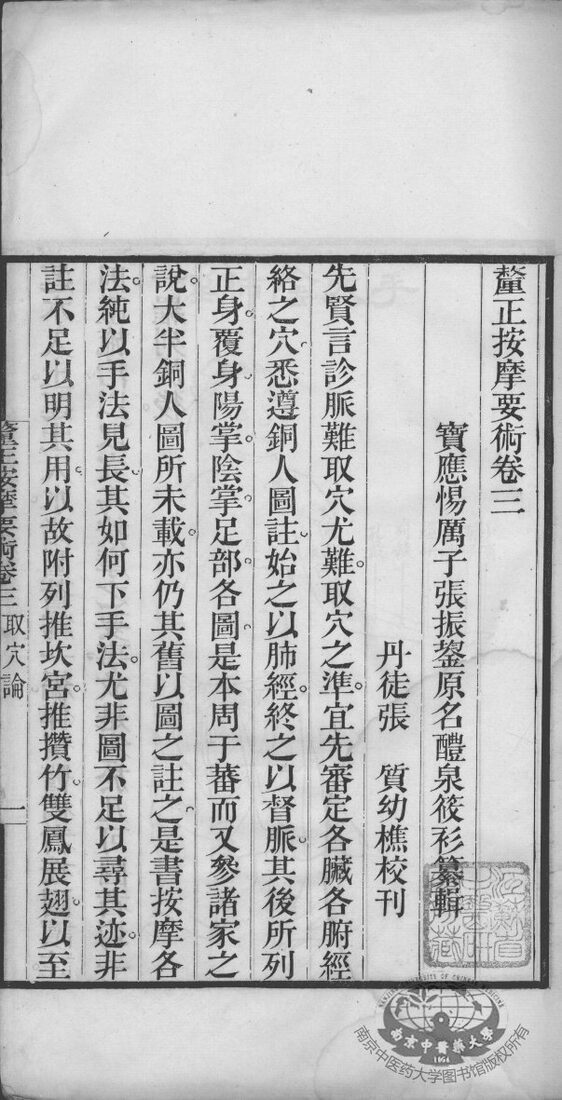 釐正按摩要術卷三
寶應惕厲子張振鋆原名醴泉筱衫纂輯
丹徒張　質幼樵校刊
先賢言診脈難取穴尤難。取穴之準。宜先審定各臟各腑經
絡之穴。悉遵銅人圖註。始之以肺經。終之以督脈。其後所列
正身。覆身。陽掌。陰掌。足部各圖。是本周于蕃而又參諸家之
說。大半銅人圖所未載。亦仍其舊以圖之註之。是書按摩各
法。純以手法見長。其如何下手法。尤非圖不足以尋其迹。非
註不足以明其用。以故附列推坎宮。推攢竹。雙鳳展翅。以至
釐正按摩要術卷三　取穴論　一
南京中醫藥大學
1954
南京中医药大学图书馆版权所有